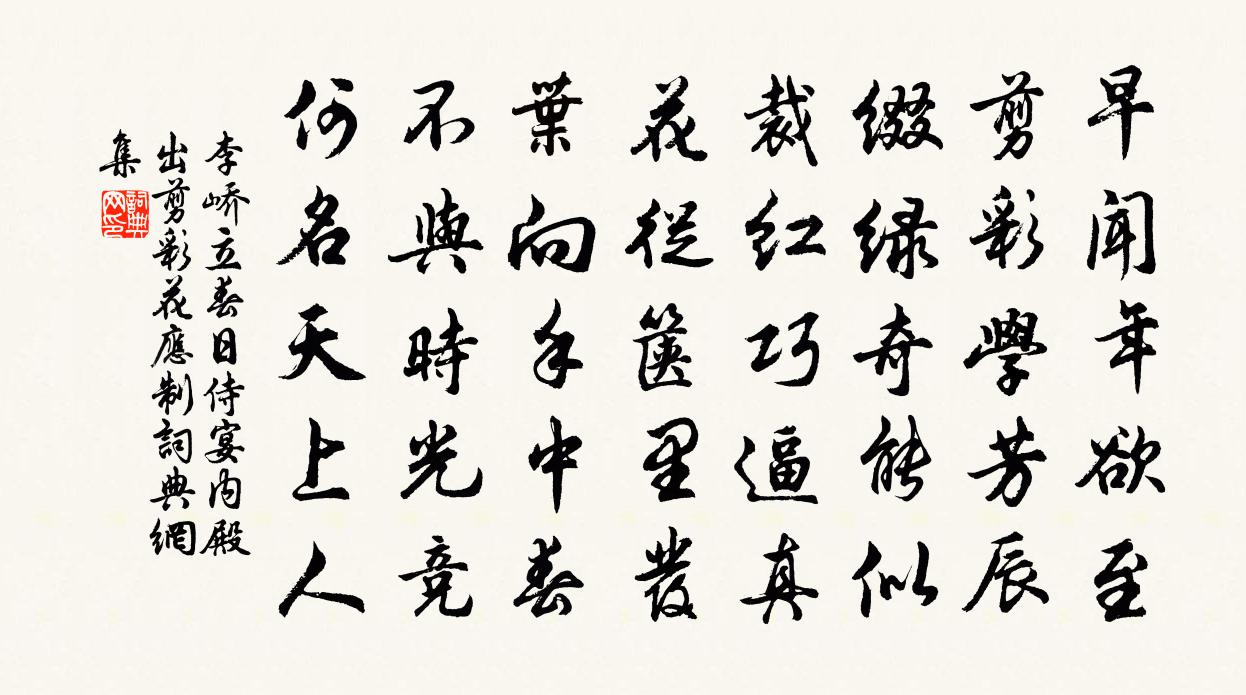 早聞年欲至
剪彩學芳辰
綴緑奇能似
裁紅巧逼真
花從篋里發
葉向手中春
不與時光競
何名天上人
李嶠立春日侍宴内殿
出剪彩花應制詞典網
集
詞典
网印